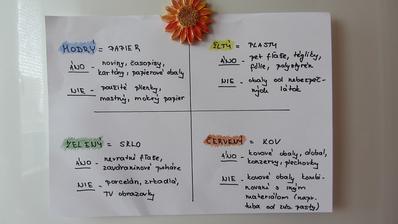 MODRÝ = PAPIER
ÁNO - noviny, časopisy,
kartóny, papierové obaly
NIE - použité plienky,
mastný, mokrý papier
ŽLTÝ = PLASTY
ÁNO - pet fľaše, tégliky,
fólie, polystyrén
NIE - obaly od nebezpeč-
ných látok
ZELENÝ = SKLO
ÁNO - nevratné fľaše,
zaváraninové poháre
NIE - porcelán, zrkadlá,
TV obrazovky
ČERVENÝ = KOV
ÁNO - kovové obaly, alobal,
konzervy, plechovky
NIE - kovové obaly kombi-
nované s iným
materiálom (napr.
tuba od zub. pasty)